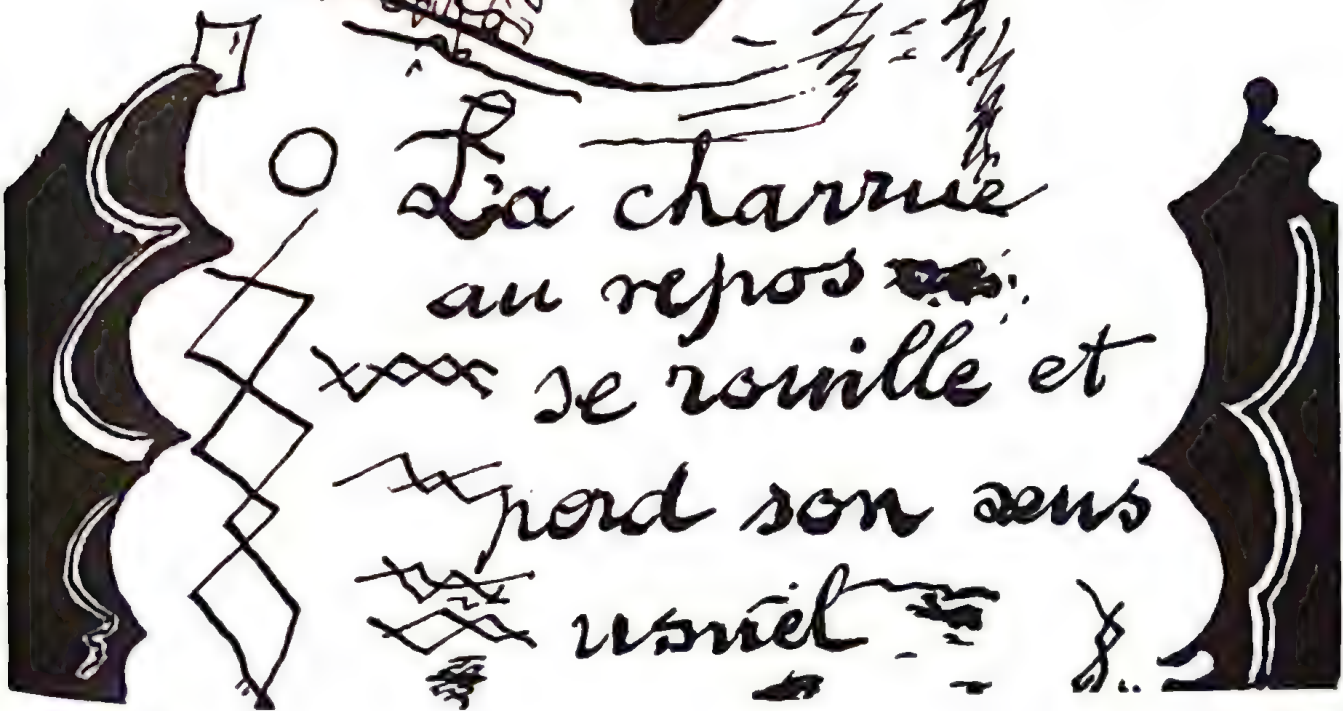 La charrue
au repos
se rouille et
perd son sens
usuel